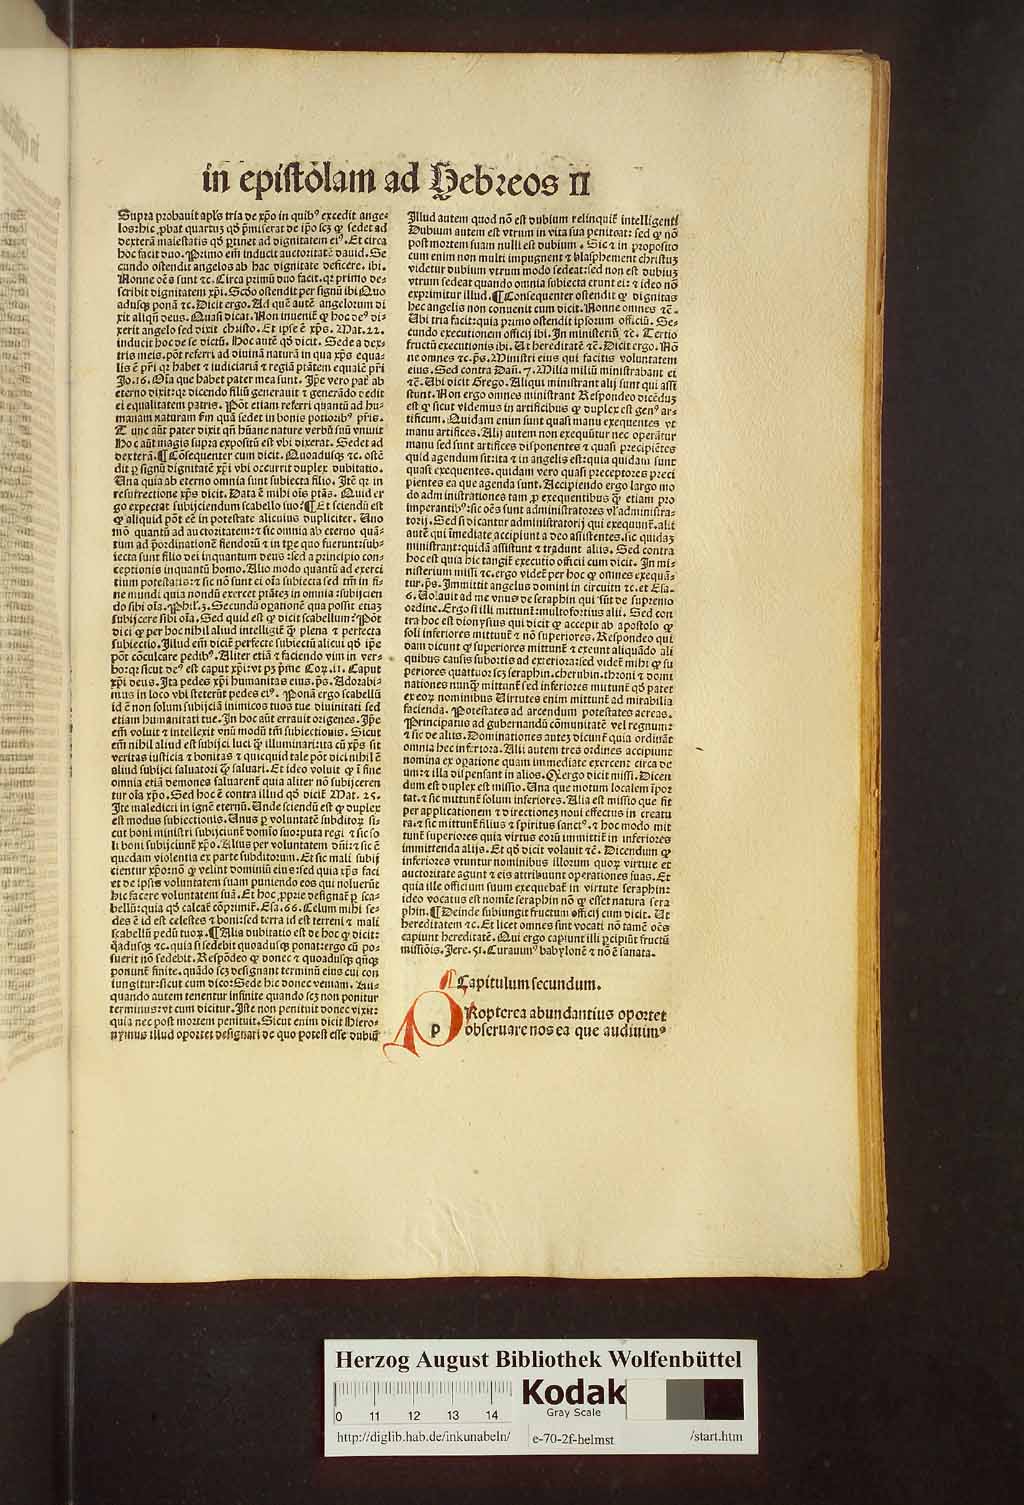 in epistolam ad Hebreos II
Supra probauit apls tria de xp̄o in quibꝰ excedit ange-
los: hic ꝓbat quartuꝫ qđ p̄miserat de ip̄o scꝫ ꝙ sedet ad
dexterā maiestatis qđ ꝑtinet ad dignitatem eiꝰ. Et circa
hoc facit duo. Primo em̄ inducit auctoritatē dauid. Se
cundo ostendit angelos ab hac dignitate deficere. ibi.
Nonne oēs sunt ⁊c. Circa primū duo facit. qꝛ primo de-
scribit dignitatem xp̄i. Scđo ostendit per signū ibi Quo
adusqꝫ ponā ⁊c. Dicit ergo. Ad quē autē angelorum di
xit aliqn̄ deus. Quasi dicat. Non inuenit̄ ꝙ hoc deꝰ di-
xerit angelo sed dixit christo. Et ipse ē xp̄s. Mat. 22.
inducit hoc de se dictū. Hoc autē qđ dicit. Sede a dex-
tris meis. pōt referri ad diuinā naturā in qua xp̄s equa-
lis ē p̄ri qꝛ habet ⁊ iudiciariā ⁊ regiā ptātem equalē p̄ri
Jo. 16. Oīa que habet pater mea sunt. Ip̄e vero pat̄ ab
eterno dixit: qꝛ dicendo filiū generauit ⁊ generādo dedit
ei equalitatem patris. Pōt etiam referri quantū ad hu-
manam naturam fm̄ quā sedet in bonis potioribꝰ p̄ris.
Tunc aūt pater dixit qn̄ hūane nature verbū suū vniuit
Hoc aūt magis supra expositū est vbi dixerat. Sedet ad
dexterā. ¶ Cōsequenter cum dicit. Quoadusqꝫ ⁊c. ostē
dit ꝑ signū dignitatē xp̄i vbi occurrit duplex dubitatio.
Una quia ab eterno omnia sunt subiecta filio. Itē qꝛ in
resurrectione xp̄s dicit. Data ē mihi oīs ptās. Quid er
go expectat subijciendum scabello suo: ¶ Et sciendū est
ꝙ aliquid pōt eē in potestate alicuius dupliciter. Uno
mō quantū ad auctoritatem: ⁊ sic omnia ab eterno quā-
tum ad p̄ordinationē fiendoꝝ ⁊ in tp̄e quo fuerunt: sub-
iecta sunt filio dei inquantum deus: sed a principio con-
ceptionis inquantū homo. Alio modo quantū ad exerci
tium potestatis: ⁊ sic nō sunt ei oīa subiecta sed tm̄ in fi-
ne mundi quia nondū exercet ptātem in omnia: subijcien
do sibi oīa. Phil. 3. Secundū oꝑationē qua possit etiaꝫ
subijcere sibi oīa. Sed quid est ꝙ dicit scabellum? Pōt
dici ꝙ per hoc nihil aliud intelligit̄ ꝙ̄ plena ⁊ perfecta
subiectio. Illud em̄ dicit̄ perfecte subiectū alicui qđ ip̄e
pōt cōculcare pedibꝰ. Aliter etiā ⁊ faciendo vim in ver-
bo: qꝛ sicut deꝰ est caput xp̄i: vt pꝫ p̄me Coꝝ. 11. Caput
xp̄i deus. Ita pedes xp̄i humanitas eius. p̄s. Adorabi-
mus in loco vbi steterūt pedes eiꝰ. Ponā ergo scabellū
id ē non solum subijciā inimicos tuos tue diuinitati sed
etiam humanitati tue. In hoc aūt errauit origenes. Ip̄e
em̄ voluit ⁊ intellexit vnū modū tm̄ subiectionis. Sicut
em̄ nihil aliud est subijci luci ꝙ̄ illuminari: ita cū xp̄s sit
veritas iusticia ⁊ bonitas ⁊ quicquid tale pōt dici nihil ē
aliud subijci saluatori ꝙ̄ saluari. Et ideo voluit ꝙ ī fine
omnia etiā demones saluarent̄ quia aliter nō subijceren
tur oīa xp̄o. Sed hoc ē contra illud qđ dicit̄ Mat. 25.
Ite maledicti in ignē eternū. Unde sciendū est ꝙ duplex
est modus subiectionis. Unus ꝑ voluntatē subditoꝝ si-
cut boni ministri subijciunt̄ domīo suo: puta regi ⁊ sic so
li boni subijciunt̄ xp̄o. Alius per voluntatem dn̄i: ⁊ sic ē
quedam violentia ex parte subditorum. Et sic mali subij
cientur xp̄o: nō ꝙ velint dominiū eius: sed quia xp̄s faci
et de ipsis voluntatem suam puniendo eos qui noluerūt
hic facere voluntatem suā. Et hoc ꝓprie designat̄ ꝑ sca-
bellū: quia qđ calcat̄ cōprimit̄. Esa. 66. Celum mihi se-
des ē id est celestes ⁊ boni: sed terra id est terreni ⁊ mali
scabellū pedū tuoꝝ. ¶ Alia dubitatio est de hoc ꝙ dicit:
q̄adusqꝫ ⁊c. quia si sedebit quoadusqꝫ ponat: ergo cū po-
suerit nō sedebit. Respōdeo ꝙ donec ⁊ quoadusqꝫ qn̄qꝫ
ponunt̄ finite. quādo scꝫ designant terminū eius cui con
iungitur: sicut cum dico: Sede hic donec veniam. Ali-
quando autem tenentur infinite quando scꝫ non ponitur
terminus: vt cum dicitur. Iste non penituit donec vixit:
quia nec post mortem penituit. Sicut enim dicit Hiero-
nymus illud oportet designari de quo potest esse dubiū
Illud autem quod nō est dubium relinquit̄ intelligenti
Dubium autem est vtrum in vita sua peniteat: sed ꝙ nō
post mortem suam nulli est dubium. Sic ⁊ in proposito
cum enim non multi impugnent ⁊ blasphement christuꝫ
videtur dubium vtrum modo sedeat: sed non est dubiuꝫ
vtrum sedeat quando omnia subiecta erunt ei: ⁊ ideo nō
exprimitur illud. ¶ Consequenter ostendit ꝙ dignitas
hec angelis non conuenit cum dicit. Nonne omnes ⁊c̄.
Ubi tria facit: quia primo ostendit ipsorum officiū. Se-
cundo executionem officij ibi. In ministeriū ⁊c̄. Tertio
fructū executionis ibi. Ut hereditatē ⁊c̄. Dicit ergo. Nō
ne omnes ⁊c. p̄s. Ministri eius qui facitis voluntatem
eius. Sed contra Dan̄. 7. Milia miliū ministrabant ei
⁊c̄. Ubi dicit Grego. Aliqui ministrant alij sunt qui assi
stunt. Non ergo omnes ministrant Respondeo dicēduꝫ
est ꝙ sicut videmus in artificibus ꝙ duplex est genꝰ ar-
tificum. Quidam enim sunt quasi manu exequentes vt
manu artifices. Alij autem non exequūtur nec operātur
manu sed sunt artifices disponentes ⁊ quasi precipiētes
quid agendum sit: ita ⁊ in angelis est: quia quidam sunt
quasi exequentes. quidam vero quasi preceptores preci
pientes ea que agenda sunt. Accipiendo ergo largo mo
do administrationes tam ꝓ exequentibus ꝙ̄ etiam pro
imperantibꝰ: sic oēs sunt administratores vl̄ administra-
torij. Sed si dicantur administratorij qui exequunt̄. alij
autē qui īmediate accipiunt a deo assistentes. sic quidaꝫ
ministrant: quidā assistunt ⁊ tradunt aliis. Sed contra
hoc est quia hic tangit̄ executio officii cum dicit. In mi-
nisterium missi ⁊c. ergo videt̄ per hoc ꝙ omnes exequā-
tur. p̄s. Immittit angelus domini in circuitu ⁊c. et Esa-
6. Uolauit ad me vnus de seraphin qui sūt de supremo
ordine. Ergo si illi mittunt̄: multofortius alii. Sed con
tra hoc est dionysius qui dicit ꝙ accepit ab apostolo ꝙ
soli inferiores mittunt̄ ⁊ nō superiores. Respondeo qui
dam dicunt ꝙ superiores mittunt̄ ⁊ exeunt aliquādo ali
quibus causis subortis ad exteriora: sed videt̄ mihi ꝙ su
periores quattuor scꝫ seraphin. cherubin. throni ⁊ domi
nationes nunqꝫ mittunt̄ sed inferiores mittunt̄ qđ patet
ex eoꝝ nominibus Uirtutes enim mittunt̄ ad mirabilia
facienda. Potestates ad arcendum potestates aereas.
Principatus ad gubernandū cōmunitatē vel regnum:
⁊ sic de aliis. Dominationes auteꝫ dicunt̄ quia ordināt
omnia hec inferiora. Alii autem tres ordines accipiunt
nomina ex oꝑatione quam immediate exercent circa de
um: ⁊ illa dispensant in alios. Qꝛ ergo dicit missi. Dicen
dum est duplex est missio. Una que motum localem īpor
tat. ⁊ sic mittunt̄ solum inferiores. Alia est missio que fit
per applicationem ⁊ directioneꝫ noui effectus in creatu
ra. ⁊ sic mittunt̄ filius ⁊ spiritus sanctꝰ. ⁊ hoc modo mit
tunt̄ superiores quia virtus eorū immittit̄ in inferiores
immittenda alijs. Et qđ dicit volauit ⁊c̄. Dicendum ꝙ
inferiores vtuntur nominibus illorum quoꝝ virtute et
auctoritate agunt ⁊ eis attribuunt operationes suas. Et
quia ille officium suum exequebat̄ in virtute seraphin:
ideo vocatus est nomīe seraphin nō ꝙ esset natura sera
phin. ¶ Deinde subiungit fructum officij cum dicit. Ut
hereditatem ⁊c. Et licet omnes sint vocati nō tamē oēs
capiunt hereditatē. Qui ergo capiunt illi ꝑcipiūt fructū
missiōis. Jere. 51. Curauimꝰ babylonē ⁊ nō ē sanata.
¶ Capitulum secundum.
pRopterea abundantius oportet
obseruare nos ea que audiuimꝰ
Herzog August Bibliothek Wolfenbüttel
Kodak
Gray Scale
0 11 12 13 14
http://diglib.hab.de/inkunabeln/ e-70-2f-helmst /start.htm